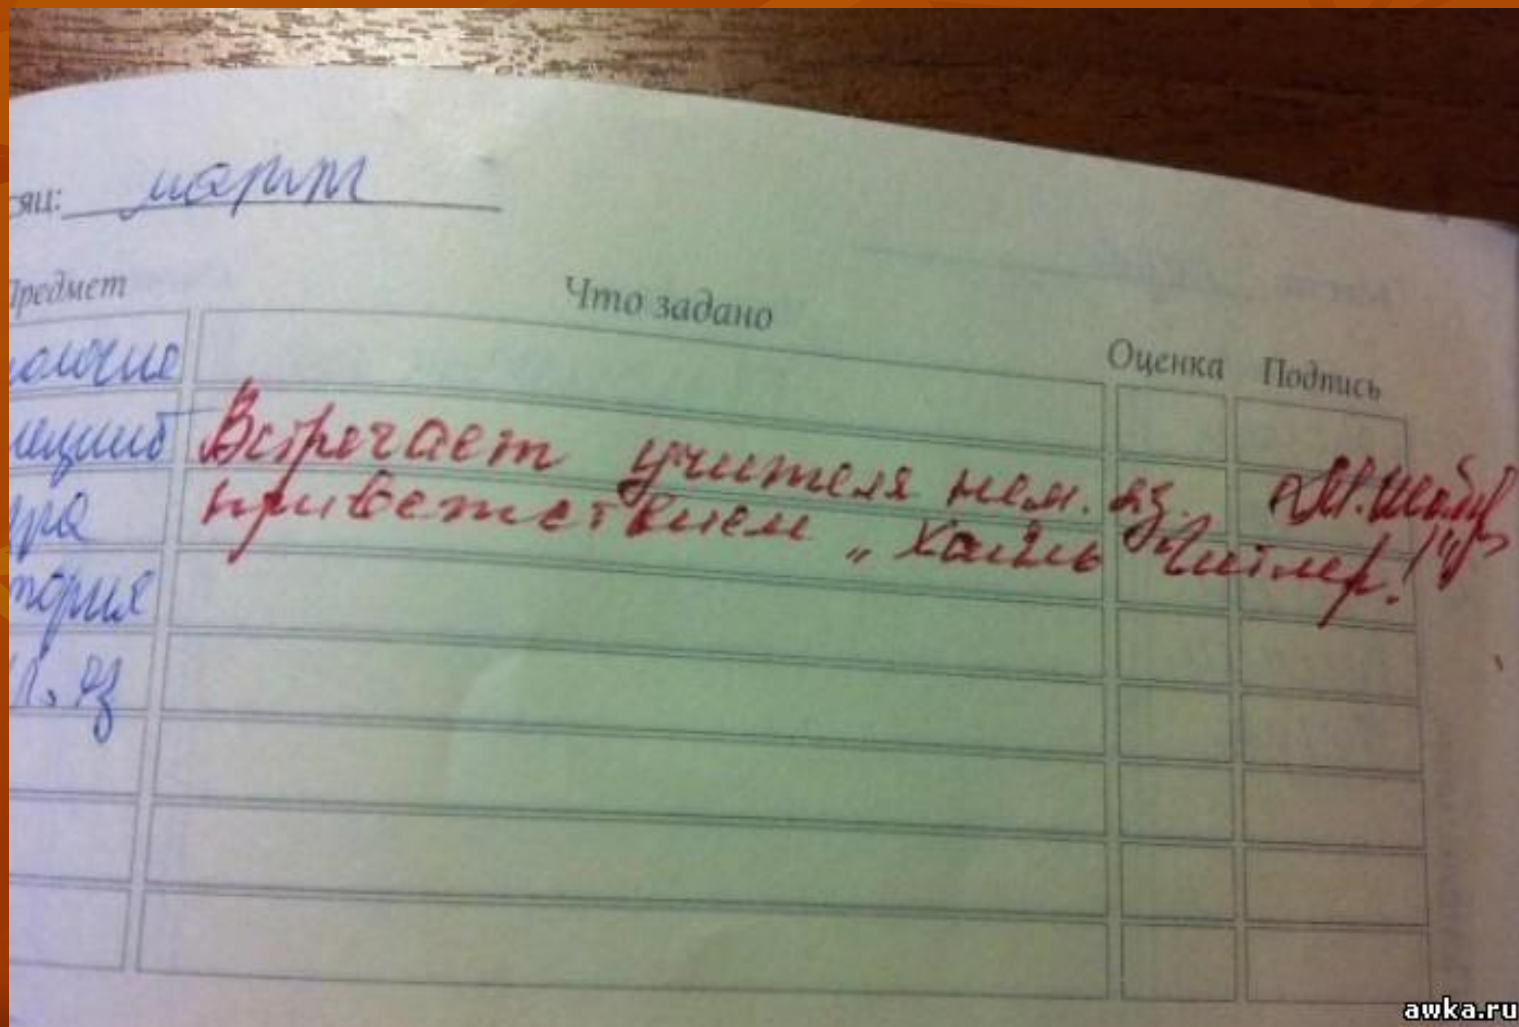 сяц: март
Предмет Что задано Оценка Подпись
ология
Встречает учителя нем. яз.
приветствием „Хайль Гитлер!"
ра
тория
л. яз
awka.ru